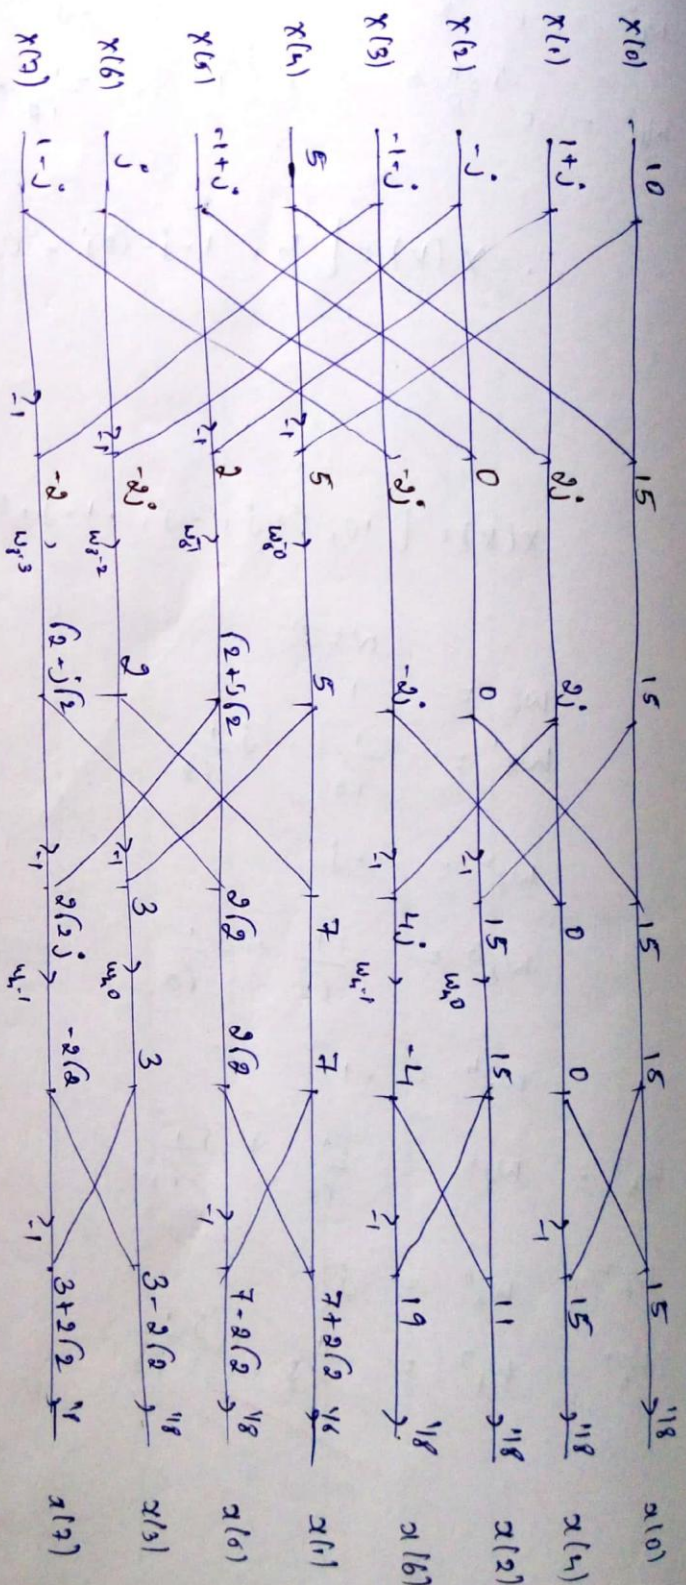 X(0) 10 15 15 15 15 15 1/8 x(0)
X(1) 1+j 2j 2j 0 0 -1 15 1/8 x(4)
X(2) -j 0 0 -1 15 W₄⁰ 15 11 1/8 x(2)
X(3) -1-j -2j -2j -1 4j W₄⁻¹ -4 -1 19 1/8 x(6)
X(4) 5 -1 5 W₈⁻⁰ 5 7 7 7+2√2 x(1)
X(5) -1+j -1 2 W₈⁻¹ √2+j√2 2√2 2√2 -1 7-2√2 1/8 x(5)
X(6) j -1 -2j W₈⁻² 2 -1 3 W₄⁰ 3 3-2√2 1/8 x(3)
X(7) 1-j -1 -2 W₈⁻³ √2-j√2 -1 2√2j W₄⁻¹ -2√2 -1 3+2√2 1/8 x(7)